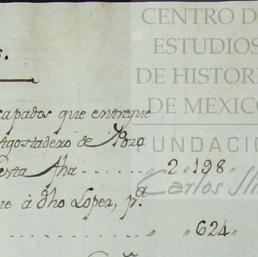 CENTRO D
ESTUDIOS
DE HISTOR
DE MEXICO
UNDACIO
Carlos Sli
s.
capados que entregue
Agostadero de Pozo
esta fha ........ 2„198„
ne à dho Lopez, p.ª
........ „ „ 624„